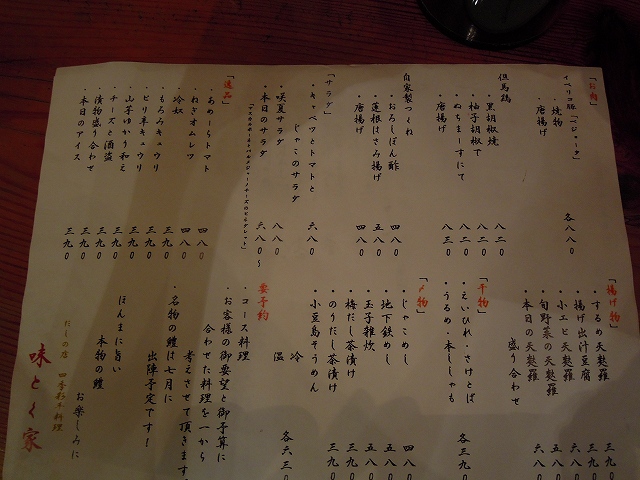 「お肉」
イベリコ豚「ベジョータ」
・焼物
・唐揚げ
各八八〇
但馬鶏
・黒胡椒焼 八二〇
・柚子胡椒で 八二〇
・ぬちまーすにて 八二〇
・唐揚げ 八三〇
自家製つくね
・おろしぽん酢 四八〇
・蓮根はさみ揚げ 五八〇
・唐揚げ 四八〇
「サラダ」
・キャベツとトマトと
じゃこのサラダ 六八〇
・咲夏サラダ 八八〇
・本日のサラダ 六八〇〜
「逸品」
・あめーらトマト 四八〇
・ねぎオムレツ 四八〇
・冷奴 三九〇
・もろみキュウリ 三九〇
・ピリ辛キュウリ 三九〇
・山芋ゆかり和え 三九〇
・チーズと酒盗 三九〇
・漬物盛り合わせ 三九〇
・本日のアイス 三九〇
「揚げ物」
・するめ天麩羅 三九〇
・揚げ出汁豆腐 三九〇
・小エビ天麩羅 六八〇
・旬野菜の天麩羅 五八〇
・本日の天麩羅
盛り合わせ 六八〇
「干物」
・えいひれ・さけとば
・うるめ・本ししゃも
各三九〇
「〆物」
・じゃこめし 四八〇
・地下鉄めし 五八〇
・玉子雑炊 五八〇
・梅だし茶漬け 三九〇
・のりだし茶漬け 三九〇
・小豆島そうめん
冷
温
各六三〇
要予約
・コース料理
・お客様の御要望と御予算に
合わせた料理を一から
考えさせて頂きます
・名物の鱧は七月に
出陣予定です!
ほんまに旨い
本物の鱧
お楽しみに
だしの店 四季彩々料理
味とく家